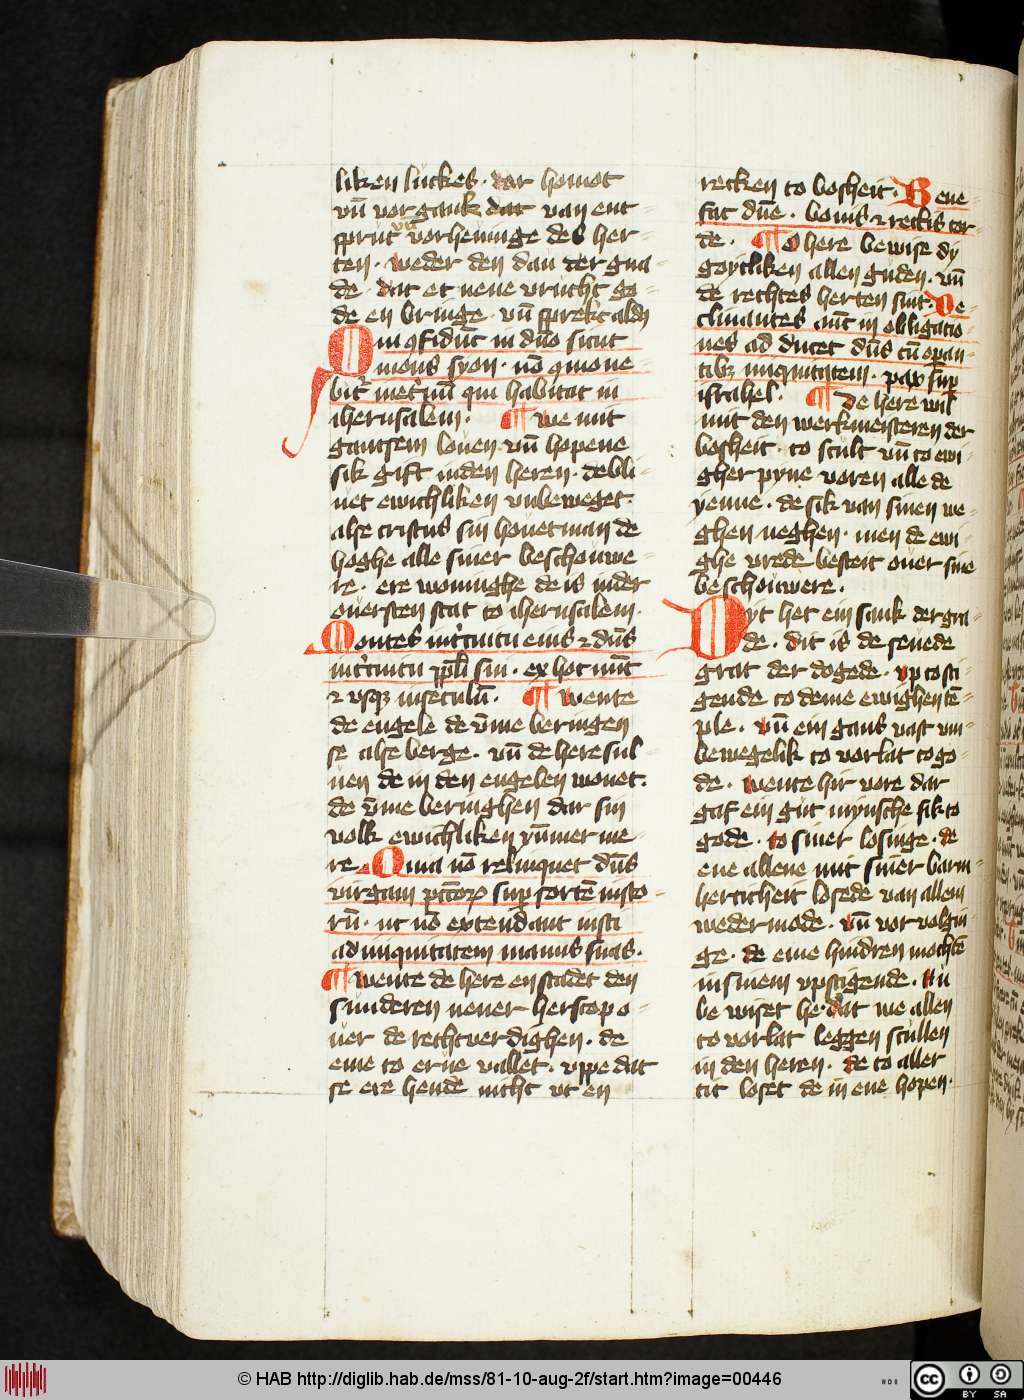 liken luckes · dar homot
vn̄ vor gank dat van ent
sprut vorheninge des her
ten · weder den dau der gna
de · dat et nene vrucht go
de en bringe · vn̄ sprekt aldꝰ
Qui ꝯfidūt in dn̄o sicut
mons syon · nō ꝯmoue
bit̄ inet̄nū qui habitat in
iherusalem · ¶ we mit
gantsem louen · vn̄ hopene
sik gift in den heren · de bli
uet ewichliken vnbeweget ·
alse cristus sin houetman de
hoghe alle siner beschouwe
re · ere woninghe de is in der
ouersten stat to iherusalem ·
Montes in c̄cuitu eius ⁊ dn̄s
in c̄cuitu ppl̄i sui · ex hoc nūc
⁊ vsqꝫ in seculū · ¶ wente
de engele de v̄me beringen
se alse berge · vn̄ de here sul
uen de in den engelen wonet ·
de v̄me beringhen dar sin
volk ewichliken yūmer me
re · Quia nō relinquet dn̄s
virgam pc̄c̄oꝝ sup̄ sortē iusto
rū · ut nō extendant iusti
ad iniquitatem manus suas ·
¶ wente de here en stadet den
sunderen nener herscop o
uer de rechtuerdighen · de
eme to erue vallet · vppe dat
se ere hende nicht vt en
recken to bosheit · Bene
fac dn̄e · bonis ⁊ rectis cor
de · ¶ O here bewise dy
gotliken allen guden · vn̄
de rechtes herten sint · De
clinantes aūt in obligatio
nes ad ducet dn̄s cū opan
tibꝫ iniquitatem · pax sup̄
israhel · ¶ De here wil
mit den werkmeisteren der
bosheit · to scult vn̄ to ewi
gher pyne voren alle de
yenne · de sik van sinen we
ghen neghen · men de ewi
ghe vrede besteit ouer sine
beschouwere ·
Dyt het ein sank der gra
de · dit is de seuede
grat der dogede · vp to sti
gende to deme ewighen tē
ple · vn̄ ein gans vast vn
bewegelik to vorlat to go
de · wente hir vore dar
gaf ein gut mynsche sik to
gode · to siner losinge · de
ene allene mit siner barm
herticheit losede van allem
wedermode · vn̄ vor volgin
ge · de eme hindren mochtē
in sinem vpstigende · Nu
bewiset he · dat we allen
to vorlat leggen scullen
in den heren · de to aller
tit loset de in ene hopen ·
© HAB http://diglib.hab.de/mss/81-10-aug-2f/start.htm?image=00446
BY SA